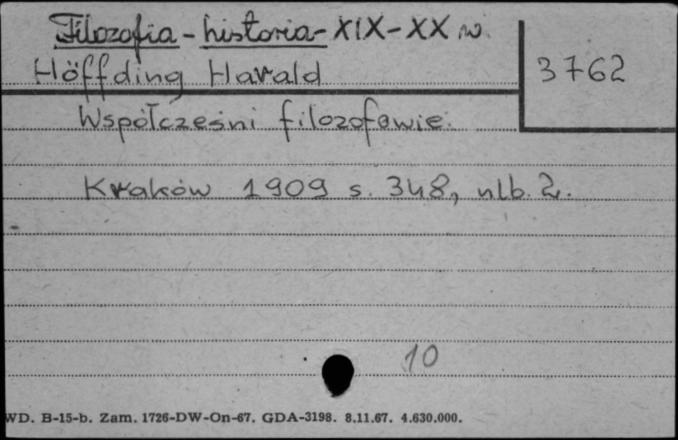 Filozofia - historia - XIX-XX w.
Höffding Harald
3762
Współcześni filozofowie.
Kraków 1909 s. 348, nlb. 2.
10
WD. B-15-b. Zam. 1726-DW-On-67. GDA-3198. 8.11.67. 4.630.000.